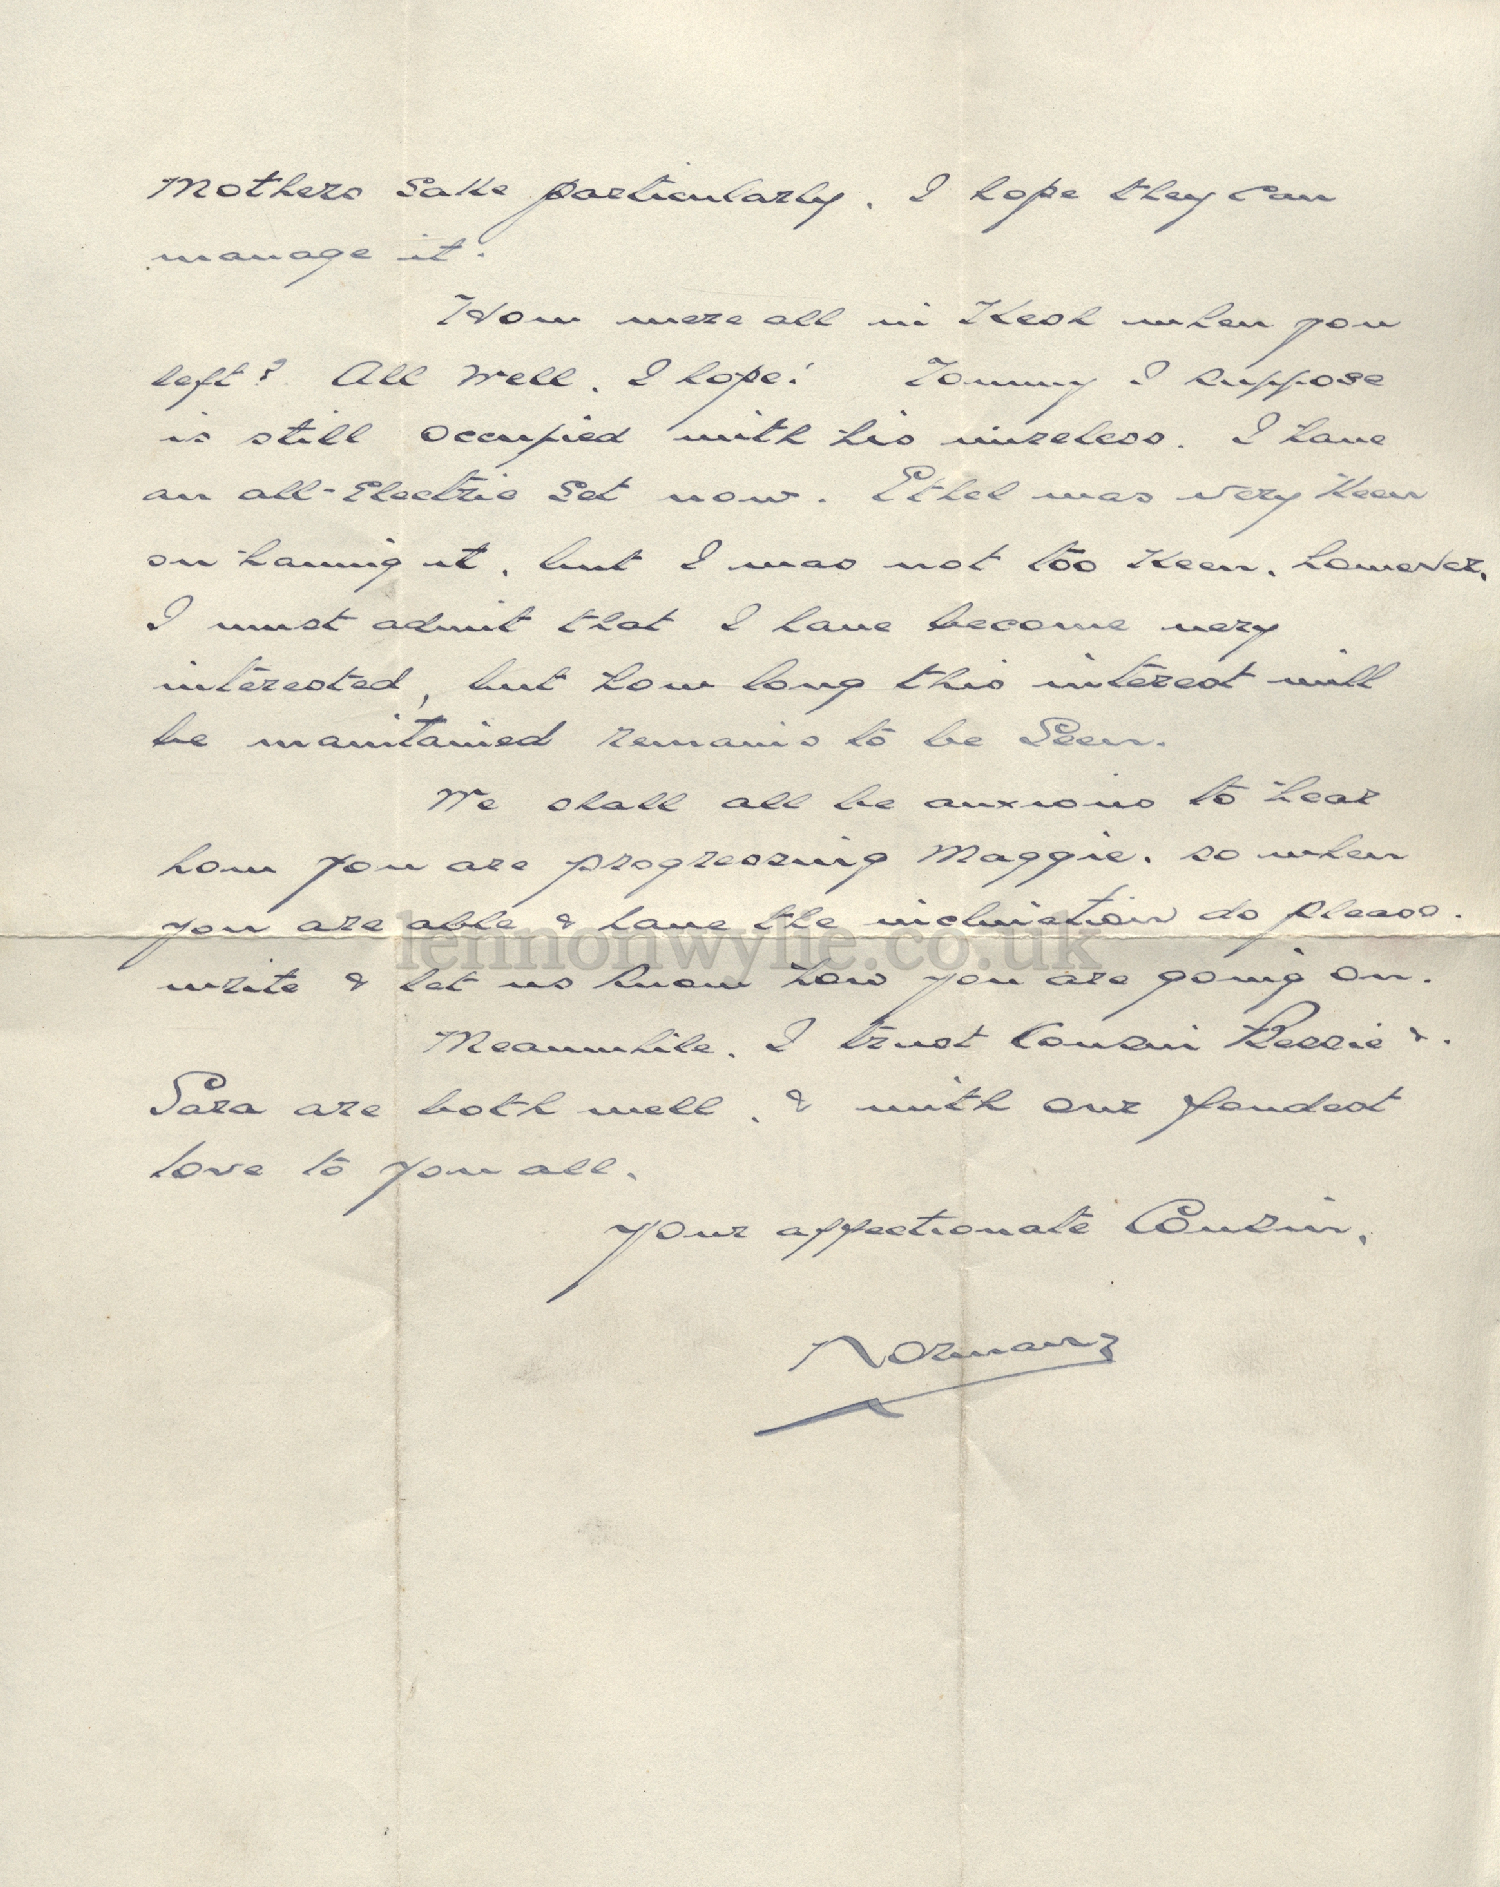 Mothers sake particularly. I hope they can
manage it.
How were all in Kesh when you
left? All well, I hope! Tommy I suppose
is still occupied with his wireless. I have
an all-Electric Set now. Ethel was very keen
on having it, but I was not too keen, however,
I must admit that I have become very
interested, but how long this interest will
be maintained remains to be seen.
We shall all be anxious to hear
how you are progressing Maggie. so when
you are able & have the inclination do please.
write & let us know how you are going on.
Meanwhile, I trust Cousin Bessie &.
Sara are both well, & with our fondest
love to you all.
Your affectionate Cousin,
Norman
lennonwylie.co.uk